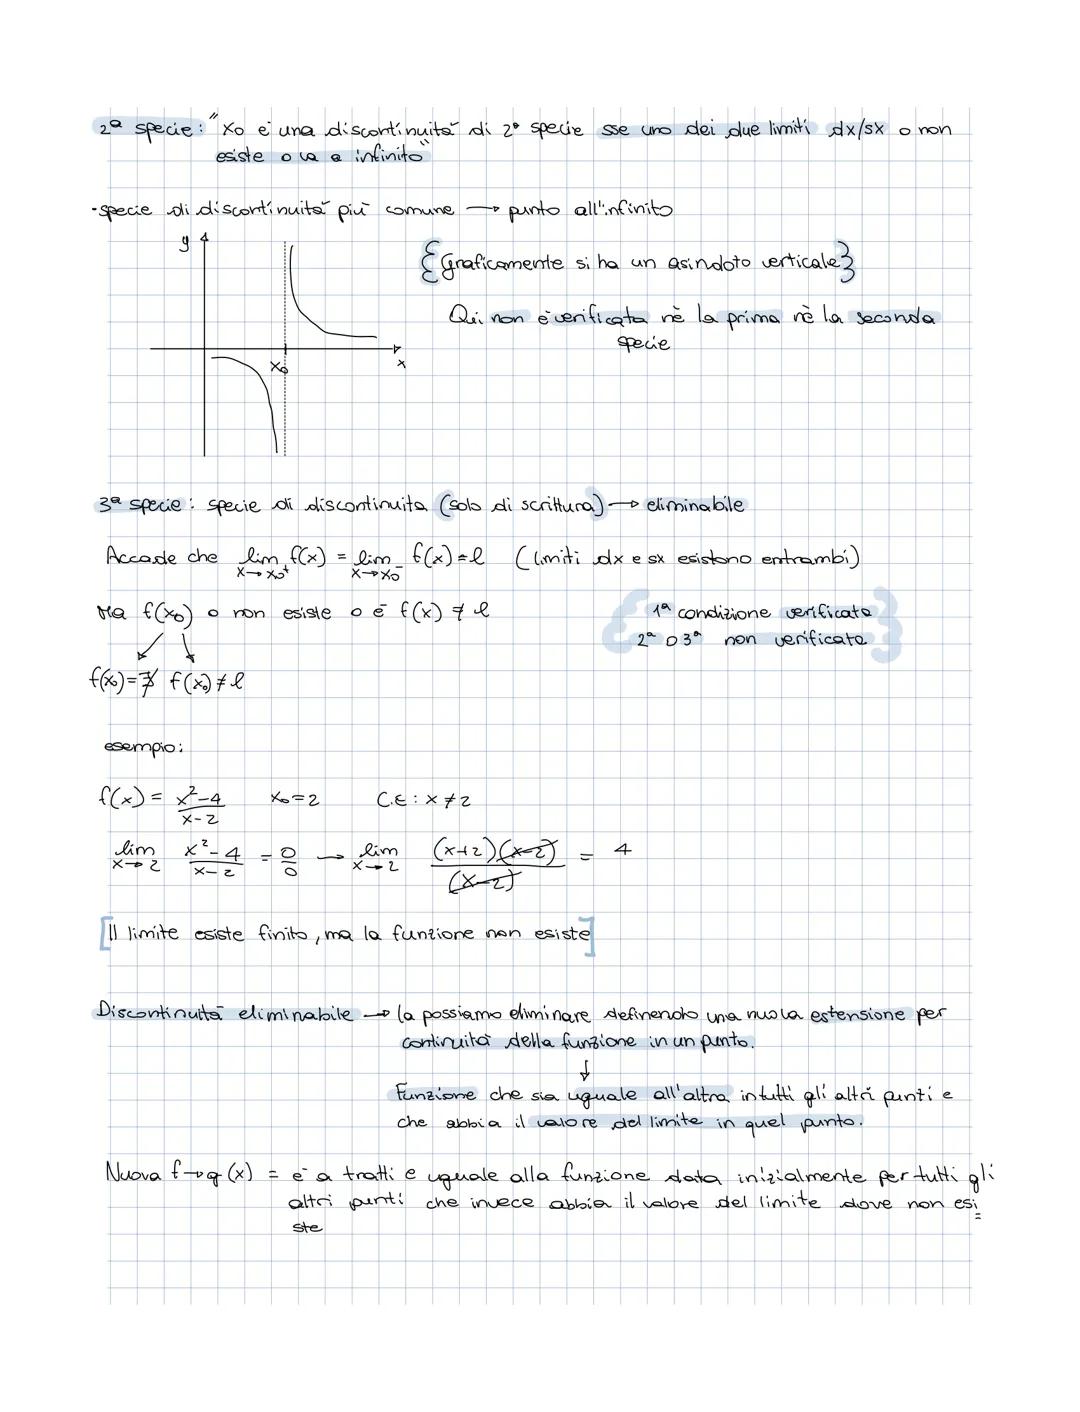 2ª specie: "x₀ è una discontinuità di 2ª specie sse uno dei due limiti dx/sx o non
esiste o va a infinito"
-specie di discontinuità più comune → punto all'infinito
y
{Graficamente si ha un asindoto verticale}
Qui non è verificata nè la prima nè la seconda
specie
x₀
x
3ª specie: specie di discontinuità (solo di scrittura) → eliminabile
Accade che lim x→x₀⁺ f(x) = lim x→x₀⁻ f(x) = l (limiti dx e sx esistono entrambi)
Ma f(x₀) o non esiste o è f(x) ≠ l
{1ª condizione verificata
2ª o 3ª non verificata}
f(x₀)=∄ f(x₀)≠l
esempio:
f(x) = x²-4 / x-2 x₀=2 C.E: x≠2
lim x→2 x²-4 / x-2 = 0/0 → lim x→2 (x+2)(x-2) / (x-2) = 4
[Il limite esiste finito, ma la funzione non esiste]
Discontinuità eliminabile → la possiamo eliminare definendo una nuova estensione per
continuità della funzione in un punto.
↓
Funzione che sia uguale all'altra in tutti gli altri punti e
che abbia il valore del limite in quel punto.
Nuova f→g(x) = è a tratti e uguale alla funzione data inizialmente per tutti gli
altri punti che invece abbia il valore del limite dove non esi
ste